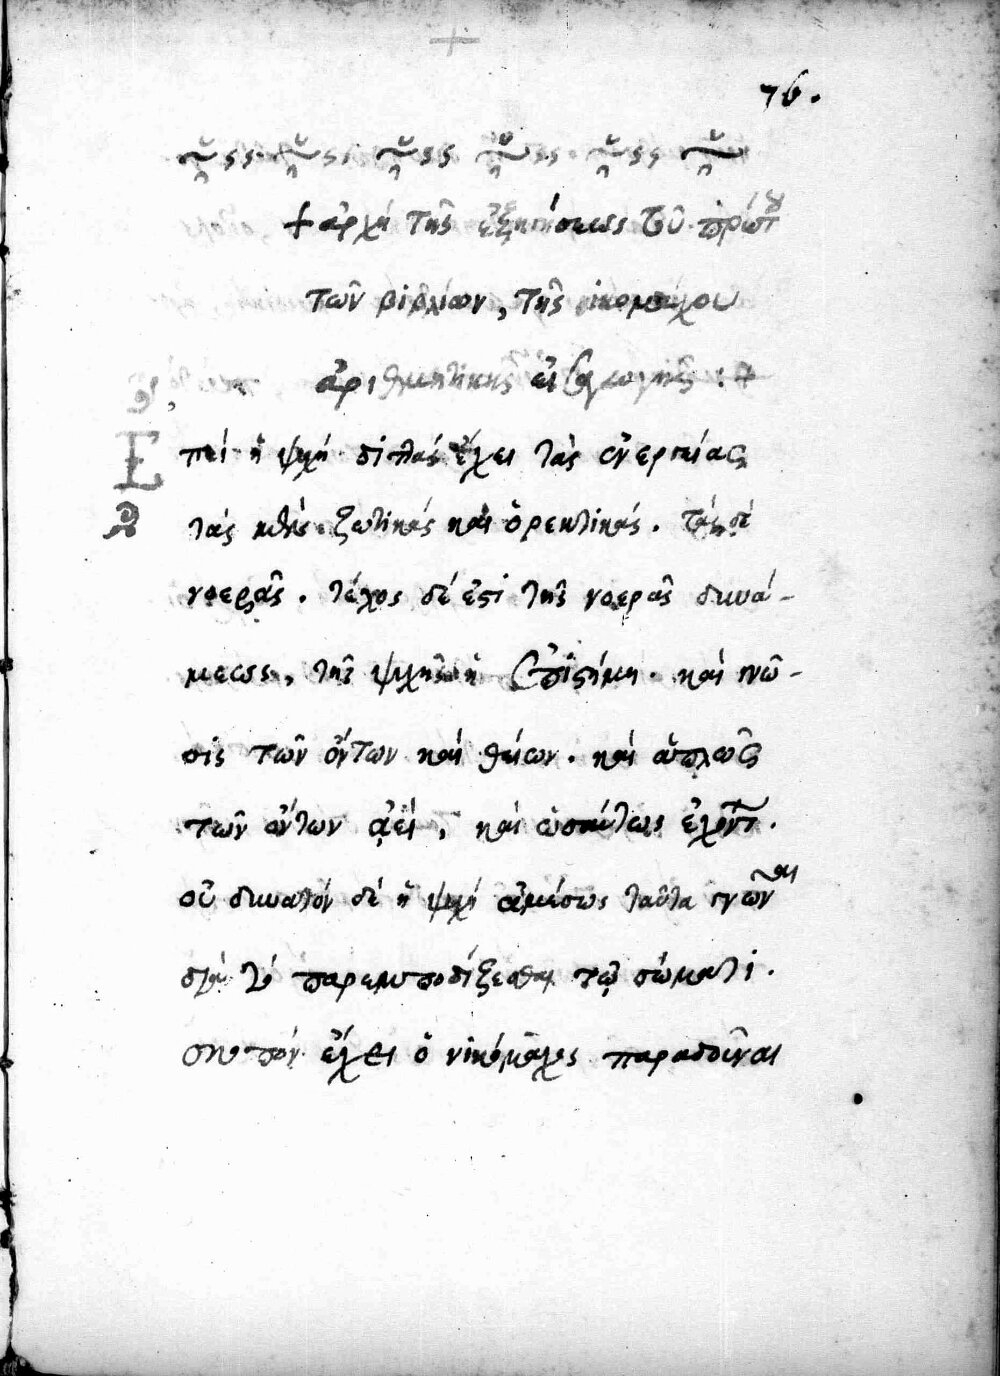 76.
+ ἀρχή τῆς ἐξηγήσεως τοῦ πρώτου
τῶν βιβλίων, τῆς νικομάχου
ἀριθμητικῆς εἰσαγωγῆς :+
Ἐπεί ἡ ψυχή διπλάς ἔχει τὰς ἐνεργείας
τάς μὲν ζωτικάς καὶ ὀρεκτικάς. τάς δέ
νοεράς. τέλος δέ ἐστι τῆς νοερᾶς δυνά-
μεως, τῆς ψυχῆς ἡ ἐπιστήμη. καί γνῶ-
σις τῶν ὄντων καί θείων. καί ἁπλῶς
τῶν ὄντων ἀεί, καί ὡσαύτως ἐχόντων.
οὐ δυνατόν δέ ἡ ψυχή ἀμέσως ταῦτα γνῶναι
διά τό παρεμποδίζεσθαι τῷ σώματι.
σκοπόν ἔχει ὁ νικόμαχος παραδοῦναι